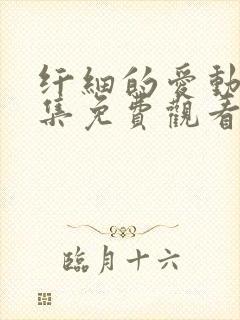 纤細的愛動
集免費觀看
臨月十六